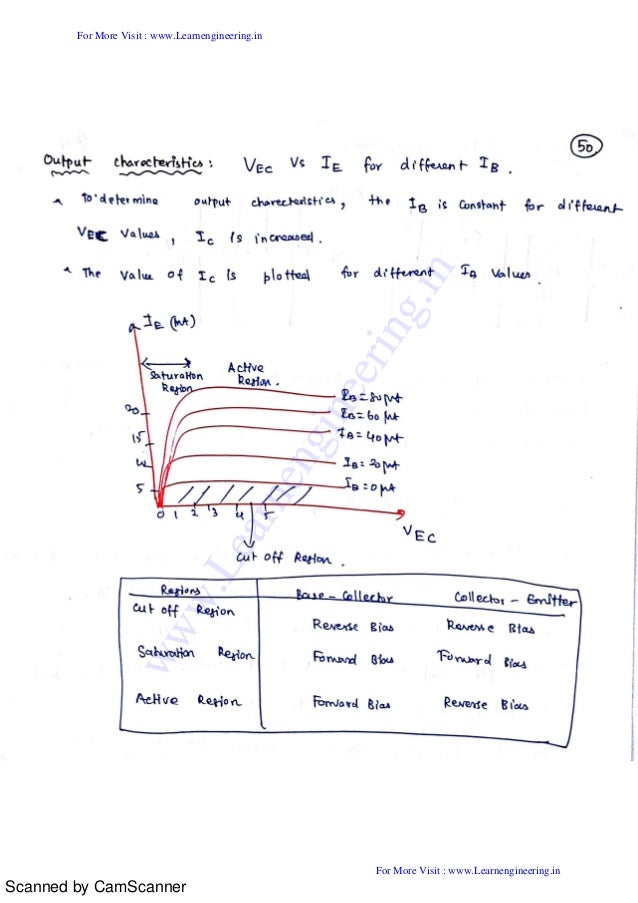 For More Visit : www.Learnengineering.in
50
Output characteristics : VEC Vs IE for different IB .
To determine output charecteristics, the IB is Constant for different
VEC Values, Ic is increased.
The Value of Ic is plotted for different IB Values.
IE (mA)
Saturation Region
Active Region.
IB = 80 μA
20
IB = 60 μA
15
IB = 40 μA
IB = 20 μA
5
IB = 0 μA
0 1 2 3 4 5
VEC
Cut off Region .
www.Learnengineering.in
Regions Base - Collector Collector - Emitter
Cut off Region Reverse Bias Reverse Bias
Saturation Region Forward Bias Forward Bias
Active Region Forward Bias Reverse Bias
For More Visit : www.Learnengineering.in
Scanned by CamScanner